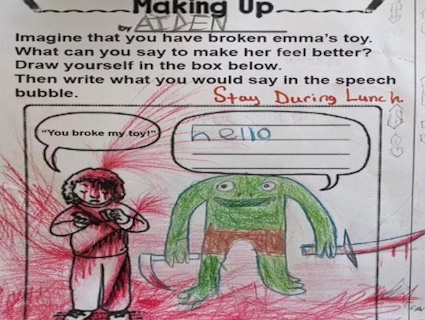 Making Up
by AIDEN
Imagine that you have broken emma's toy.
What can you say to make her feel better?
Draw yourself in the box below.
Then write what you would say in the speech
bubble.
Stay During Lunch.
"You broke my toy!"
hello